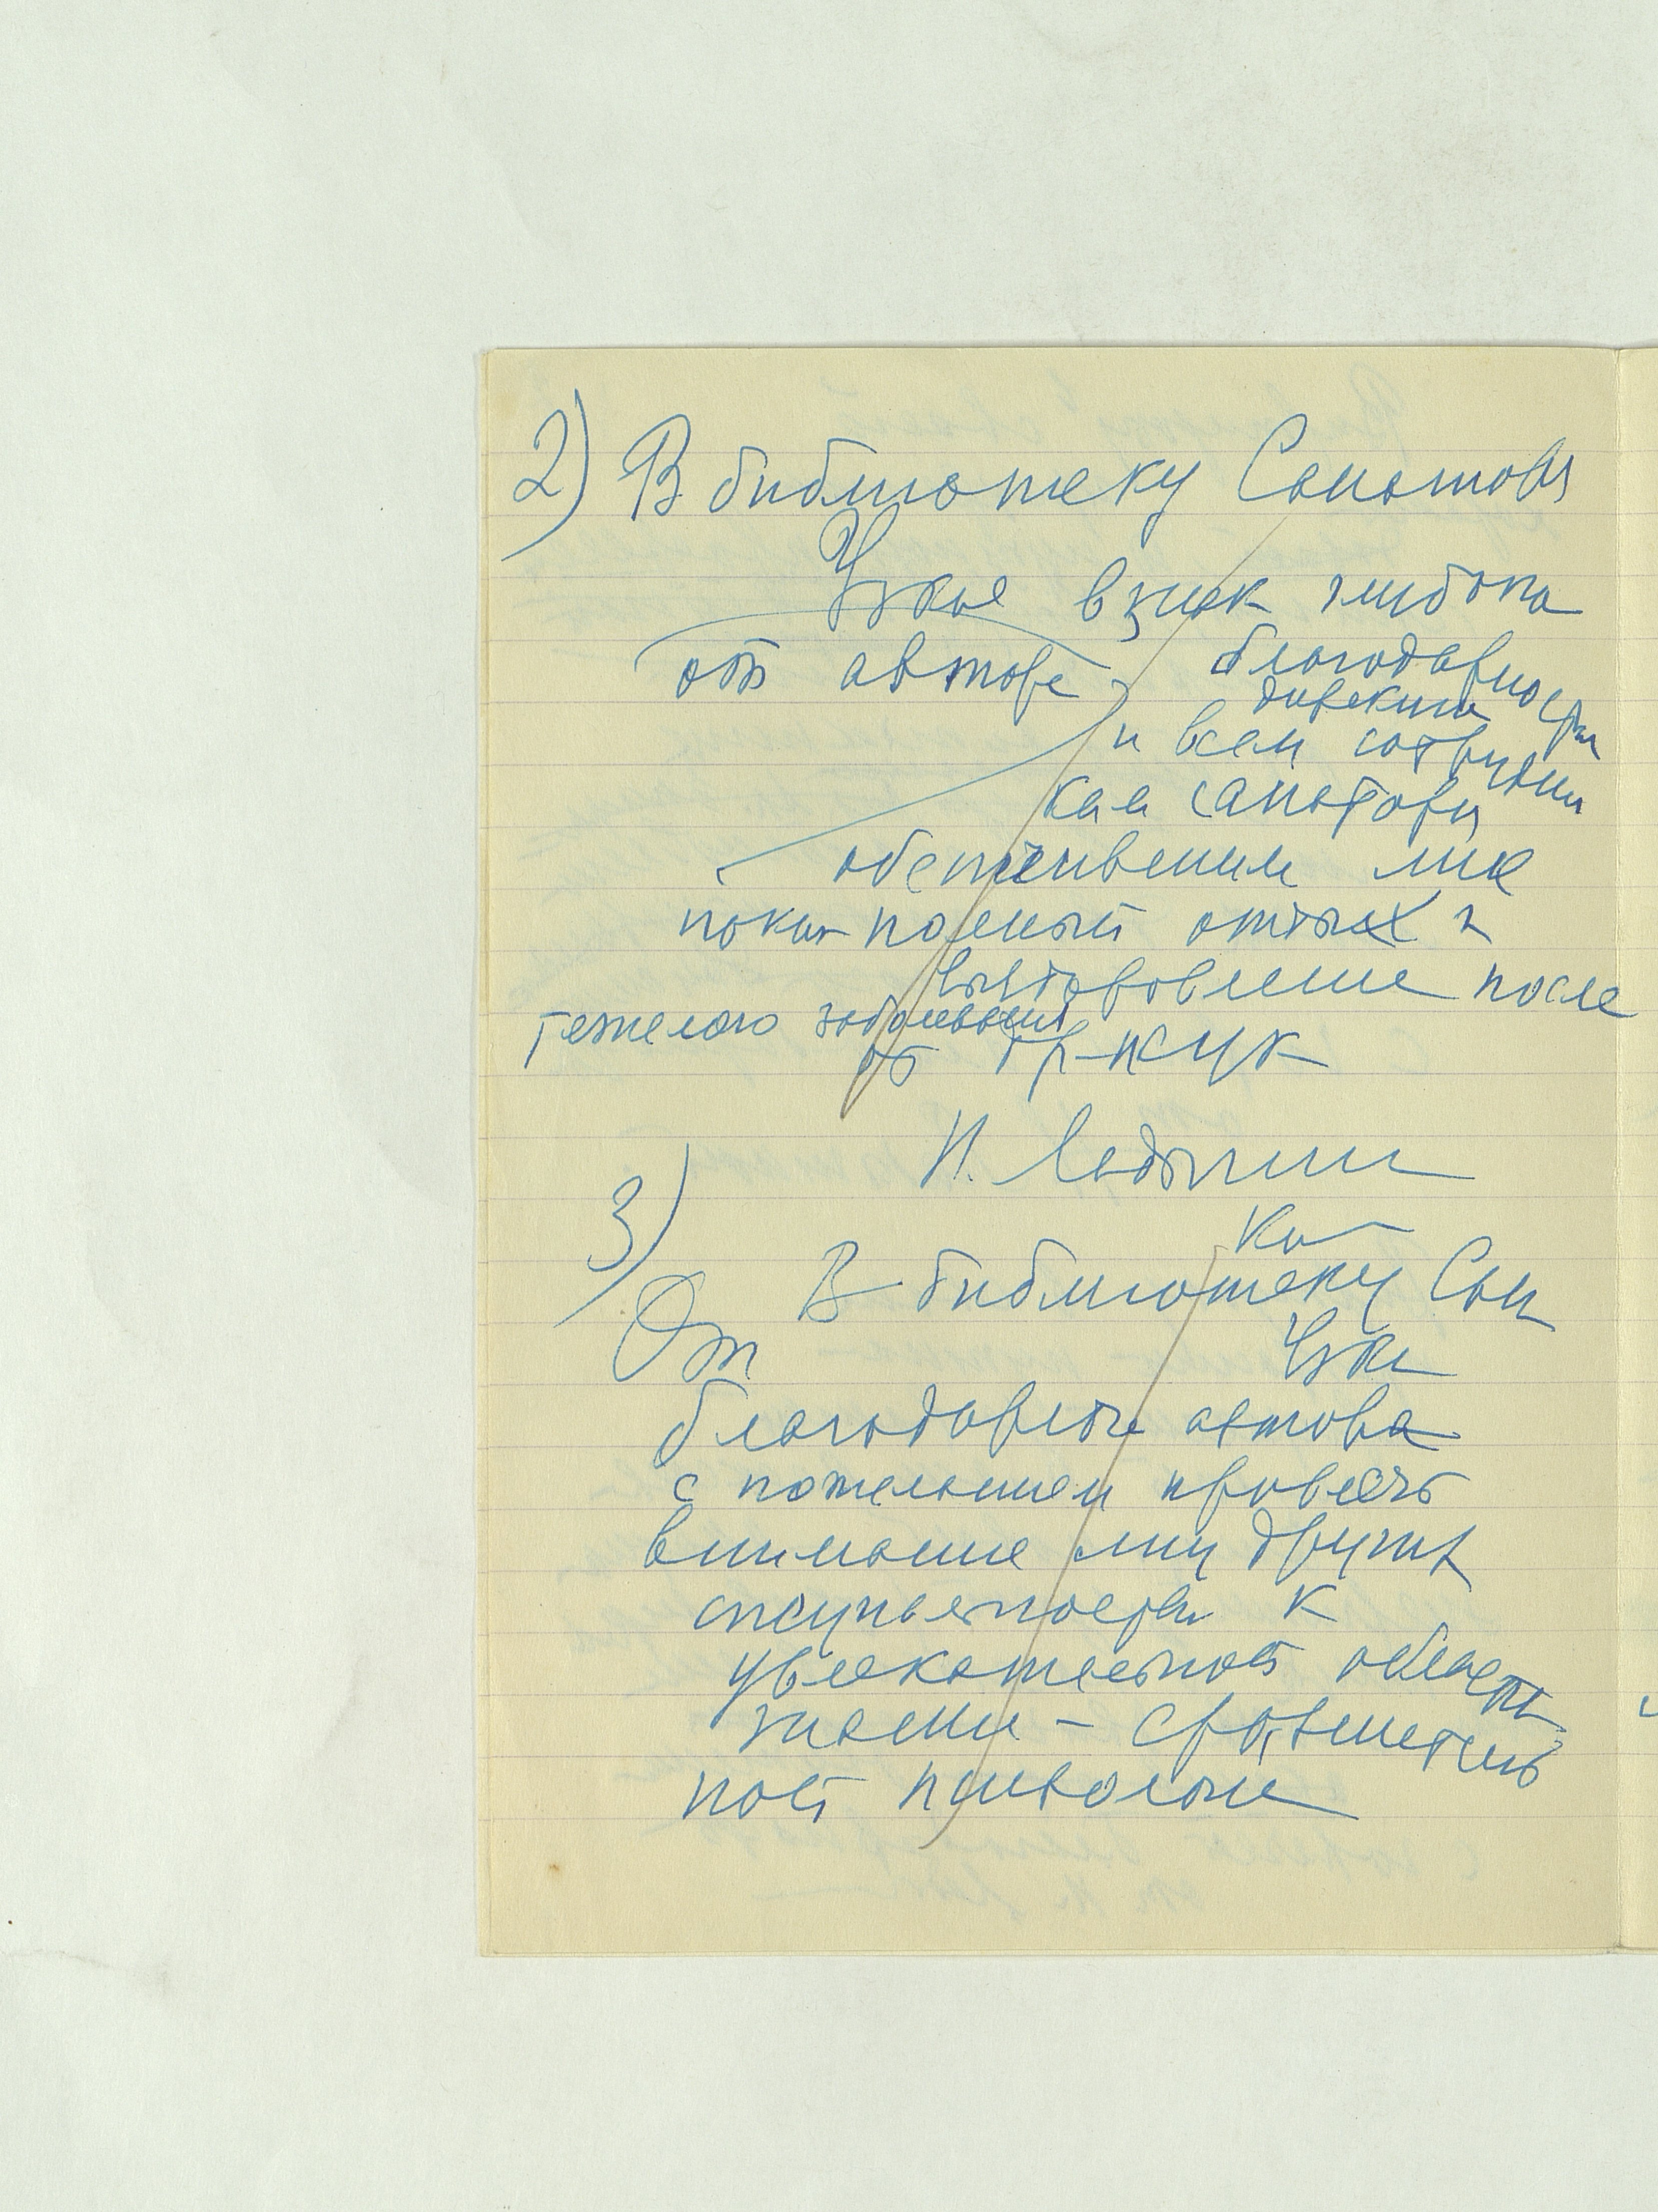 2) В библиотеку Санатория
Узкое в знак глубокой
от автора благодарности
дирекции
и всем сотрудни
кам санатория
обеспечившим мне
покой полный отдых и
выздоровление после
тяжелого заболевания
от гр-ки
Н. Ладыгин
Ко
3) В библиотеку Сан
От Узкое
благодарного автора
с пожеланием привлечь
внимание других
к
увлекательной области
знания – сравнитель
ной психологии